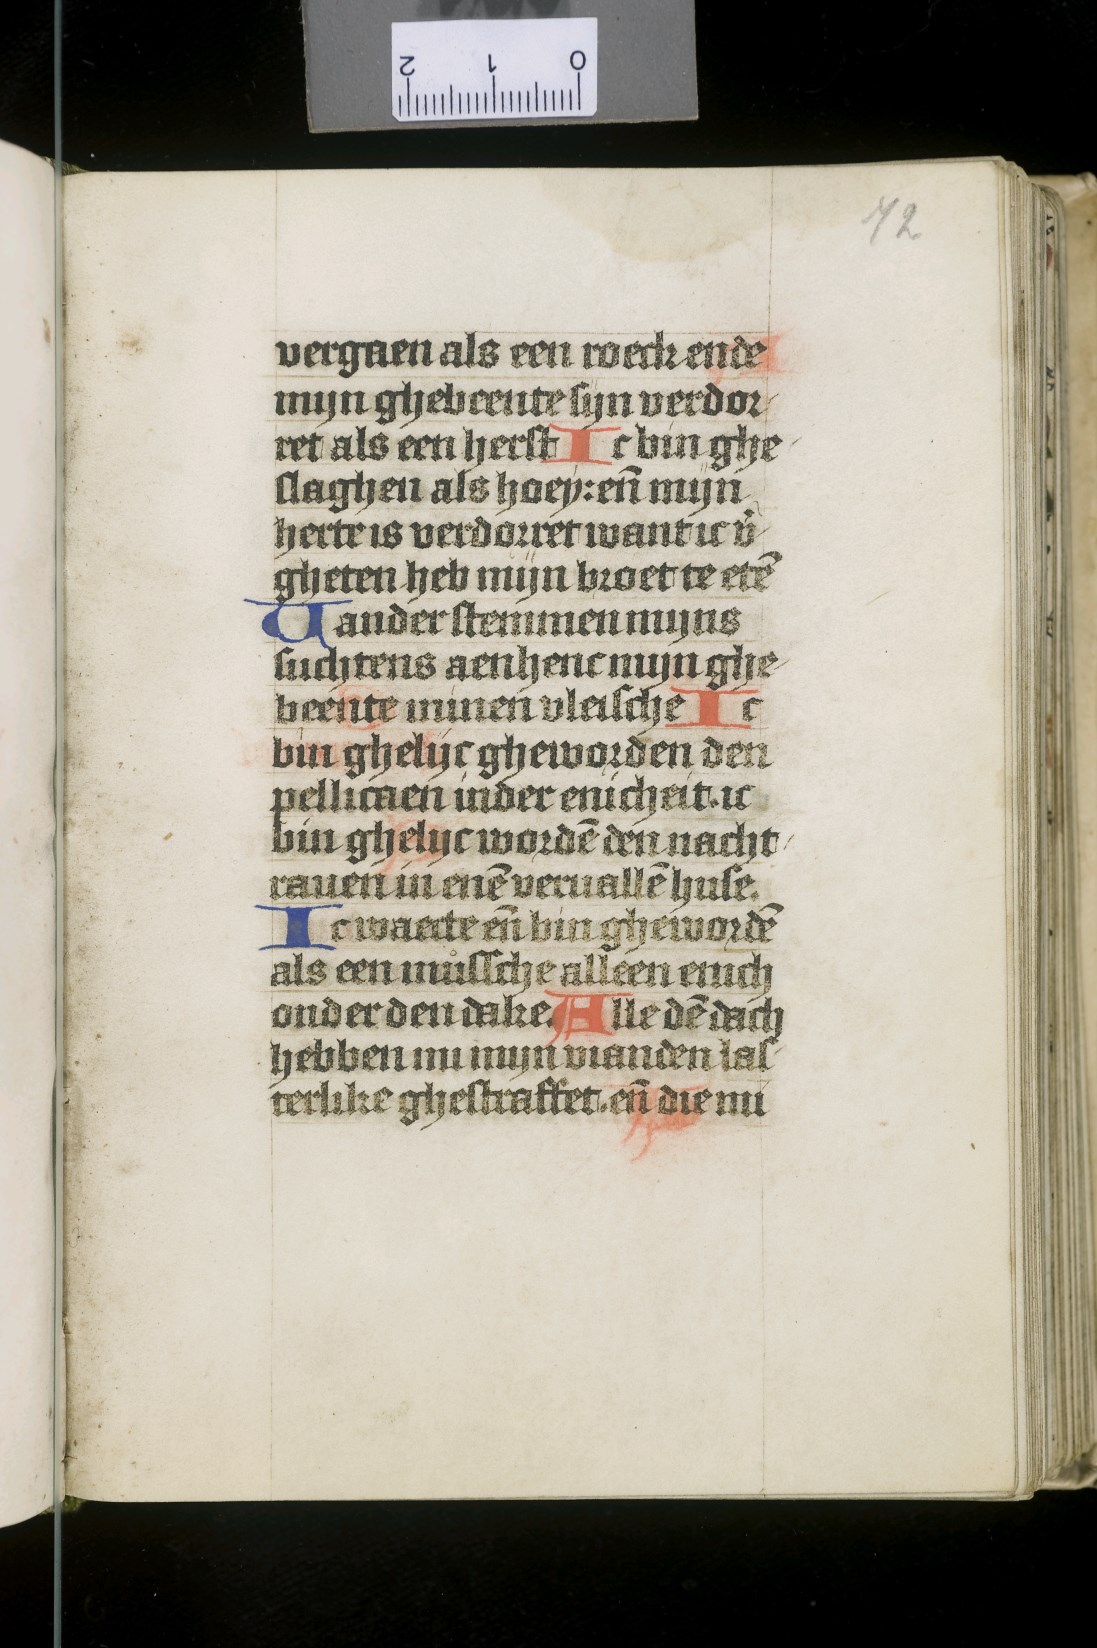 0 1 2
72
vergaen als een roeck ende
mijn ghebeente sijn verdor-
ret als een herst Ic bin ghe-
slaghen als hoey: en̄ mijn
herte is verdorret want ic v̄-
gheten heb mijn broet te etē
Vander stemmen mijns
suchtens aenhenc mijn ghe-
beente minen vleische Ic
bin ghelijc gheworden den
pellicaen inder enicheit. ic
bin ghelijc wordē den nacht-
rauen in enē veruallē huse.
Ic waecte en̄ bin ghewordē
als een mussche alleen enich
onder den dake. Alle dē dach
hebben mi mijn vianden las-
terlike ghestraffet. en̄ die mi